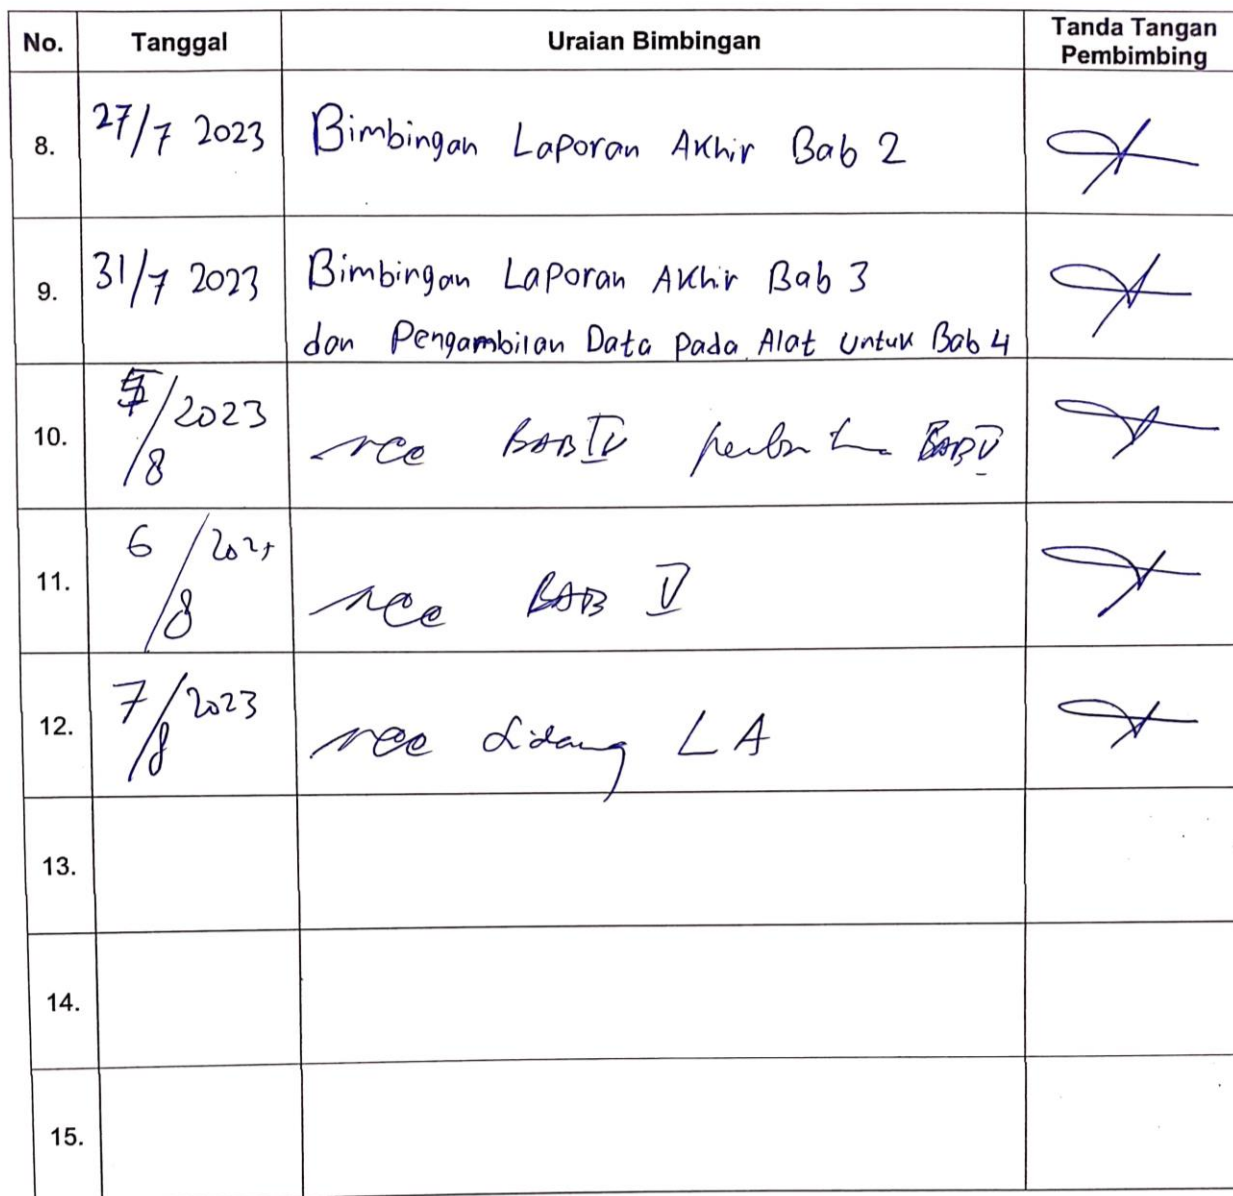 No. Tanggal Uraian Bimbingan Tanda Tangan Pembimbing
8. 27/7 2023 Bimbingan Laporan Akhir Bab 2
9. 31/7 2023 Bimbingan Laporan Akhir Bab 3
dan Pengambilan Data Pada Alat Untuk Bab 4
10. /8 2023 Acc BAB IV BAB V
11. 6/8 Acc BAB V
12. 7/8 2023 Acc Sidang LA
13.
14.
15.